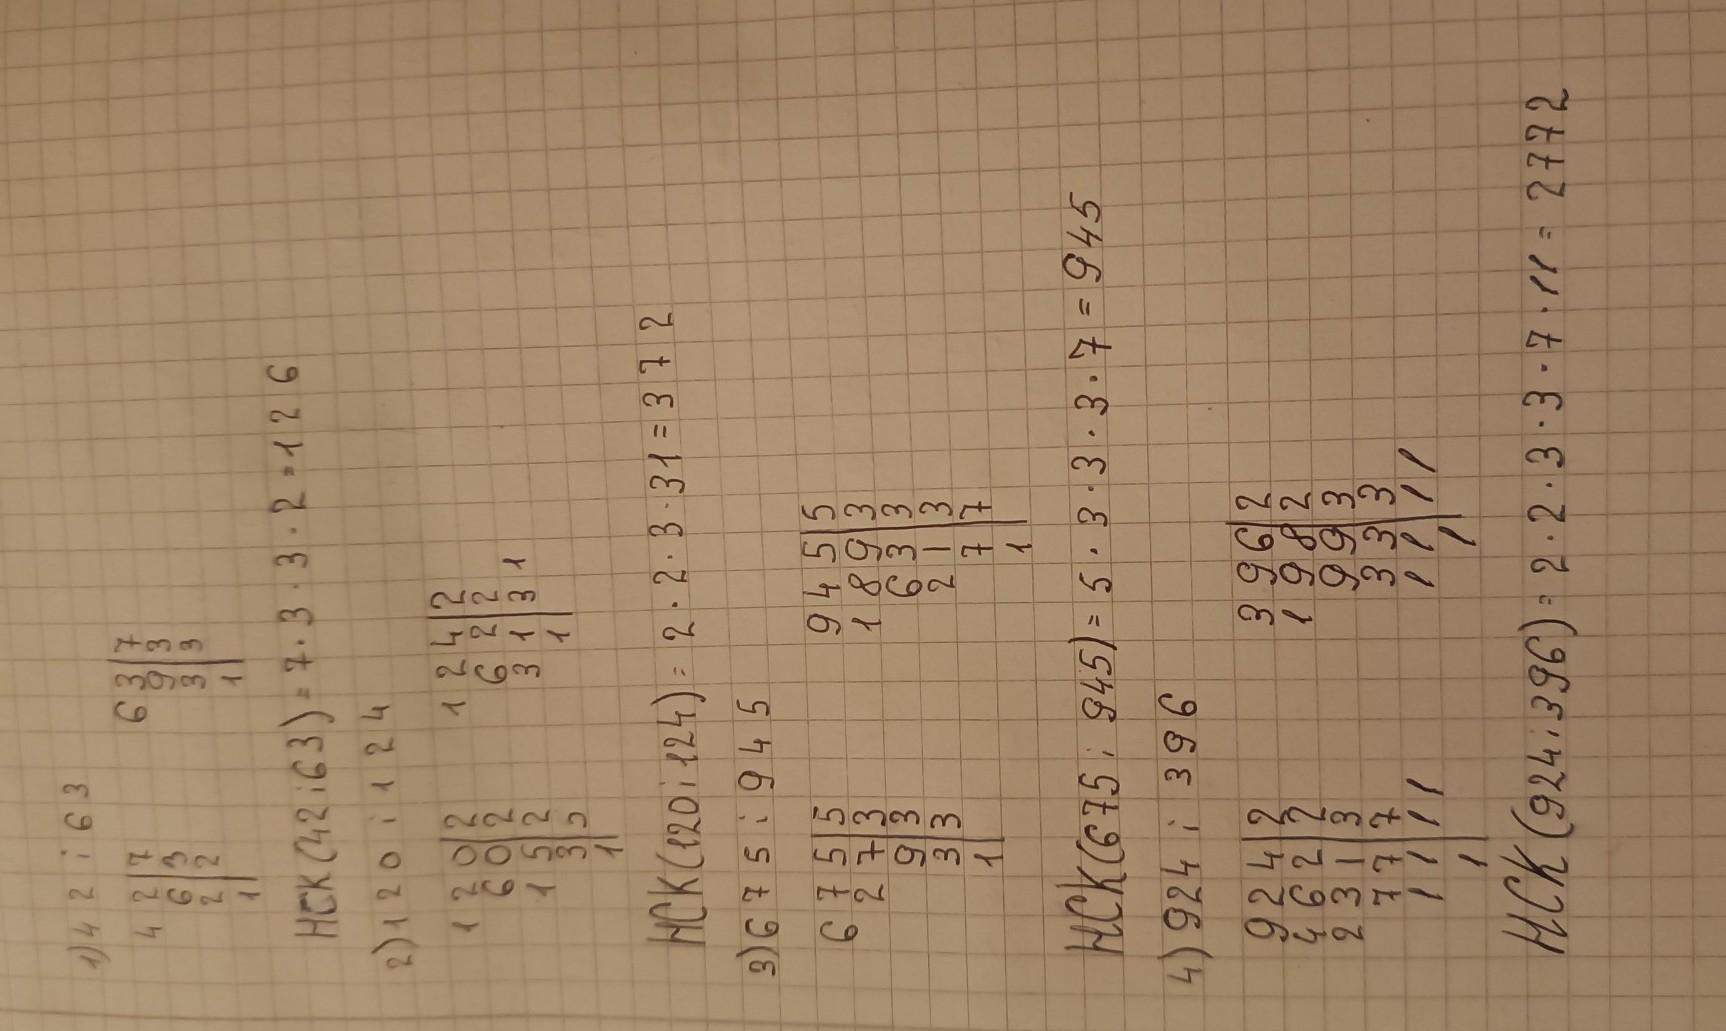 1) 42 і 63
42|7 63|7
6|3 9|3
2|2 3|3
1| 1|
НСК(42 і 63) = 7·3·3·2=126
2) 120 і 124
120|2 124|2
60|2 62|2
15|2 31|31
3|3 1|
1|
НСК(120 і 124) = 2·2·3·31=372
3) 675 і 945
675|5 945|5
27|3 189|3
9|3 63|3
3|3 21|3
1| 7|7
1|
НСК(675 і 945) = 5·3·3·3·7=945
4) 924 і 396
924|2 396|2
462|2 198|2
231|3 99|3
77|7 33|3
11|11 11|11
1| 1|
НСК(924 і 396) = 2·2·3·3·7·11=2772